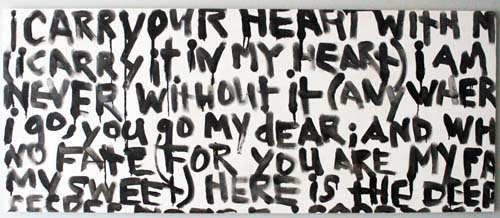 i CARRY YOUR HEART WITH M
(i CARRY iT iN MY HEART) i AM
NEVER WiTHOUT iT (ANYWHER
I GO, YOU GO MY DEAR; AND WH
NO FATE (FOR YOU ARE MY FA
MY SWEET) HERE iS THE DEEP